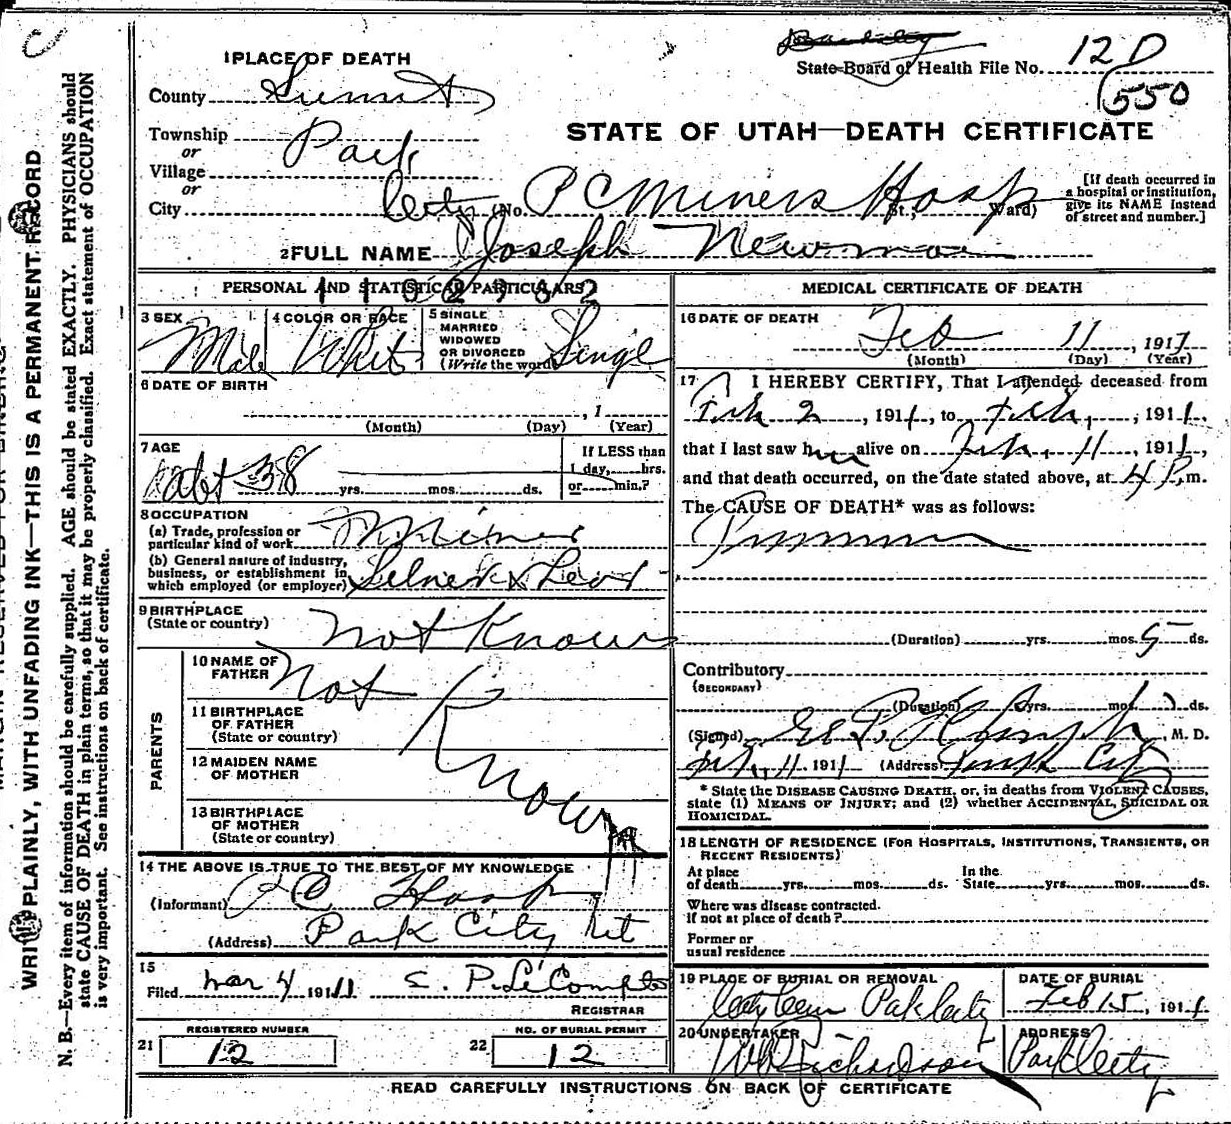 C
12 D
State Board of Health File No.
550
1 PLACE OF DEATH
County Summit
STATE OF UTAH—DEATH CERTIFICATE
Township
or
Village Park
or
City City (No. P C Miners Hosp St., Ward)
[If death occurred in
a hospital or institution,
give its NAME instead
of street and number.]
2 FULL NAME Joseph Newman
PERSONAL AND STATISTICAL PARTICULARS
3 SEX
Male
4 COLOR OR RACE
White
5 SINGLE
MARRIED
WIDOWED
OR DIVORCED
(Write the word) Single
6 DATE OF BIRTH
, 1
(Month) (Day) (Year)
7 AGE
abt 38 yrs. mos. ds.
If LESS than
1 day, hrs.
or min.?
8 OCCUPATION
(a) Trade, profession or
particular kind of work Miner
(b) General nature of industry,
business, or establishment in
which employed (or employer) Silver & Lead
9 BIRTHPLACE
(State or country) Not Known
PARENTS
10 NAME OF
FATHER Not Known
11 BIRTHPLACE
OF FATHER
(State or country)
12 MAIDEN NAME
OF MOTHER
13 BIRTHPLACE
OF MOTHER
(State or country)
14 THE ABOVE IS TRUE TO THE BEST OF MY KNOWLEDGE
(Informant) P C Hosp
(Address) Park City Ut
15
Filed Mar 4 1911 E. P. Le Compte
REGISTRAR
REGISTERED NUMBER
21 12
NO. OF BURIAL PERMIT
22 12
MEDICAL CERTIFICATE OF DEATH
16 DATE OF DEATH
Feb 11, 1911
(Month) (Day) (Year)
17 I HEREBY CERTIFY, That I attended deceased from
Feb 2, 1911, to Feb, 1911,
that I last saw him alive on Feb. 11, 1911,
and that death occurred, on the date stated above, at 4 P. m.
The CAUSE OF DEATH* was as follows:
(Duration) yrs. mos. 5 ds.
Contributory
(SECONDARY)
(Duration) yrs. mos. ds.
(Signed) M. D.
Feb. 11 1911 (Address) Park City
* State the DISEASE CAUSING DEATH, or, in deaths from VIOLENT CAUSES,
state (1) MEANS OF INJURY; and (2) whether ACCIDENTAL, SUICIDAL OR
HOMICIDAL.
18 LENGTH OF RESIDENCE (FOR HOSPITALS, INSTITUTIONS, TRANSIENTS, OR
RECENT RESIDENTS)
At place
of death yrs. mos. ds.
In the
State yrs. mos. ds.
Where was disease contracted.
If not at place of death?
Former or
usual residence
19 PLACE OF BURIAL OR REMOVAL
City Cem Park City
DATE OF BURIAL
Feb 15, 1911
20 UNDERTAKER
Richardson
ADDRESS
Park City
READ CAREFULLY INSTRUCTIONS ON BACK OF CERTIFICATE
WRITE PLAINLY, WITH UNFADING INK—THIS IS A PERMANENT RECORD
N. B.—Every item of information should be carefully supplied. AGE should be stated EXACTLY. PHYSICIANS should
state CAUSE OF DEATH in plain terms, so that it may be properly classified. Exact statement of OCCUPATION
is very important. See instructions on back of certificate.